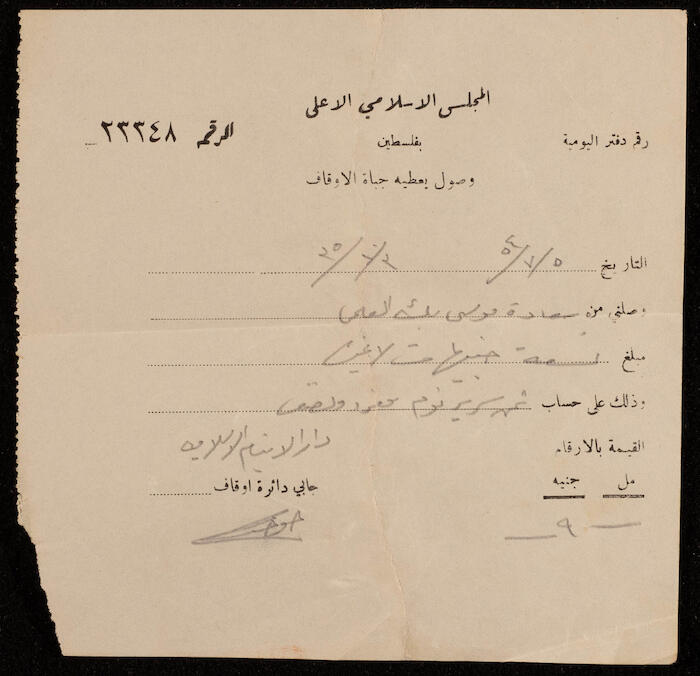 المجلس الاسلامي الاعلى
بفلسطين
رقم دفتر اليومية
الرقم ٢٣٣٤٨
وصول يعطيه جباة الاوقاف
التاريخ ٥/٧/٥٤ ٣/١٠/٣٥
وصلني من سعادة موسى بك العلمي
مبلغ تسعة جنيهات لا غير
وذلك على حساب ثمن سرير نوم مفرد ونصف
القيمة بالارقام دار الايتام الاسلامية
مل جنيه جابي دائرة اوقاف
— ٩ —